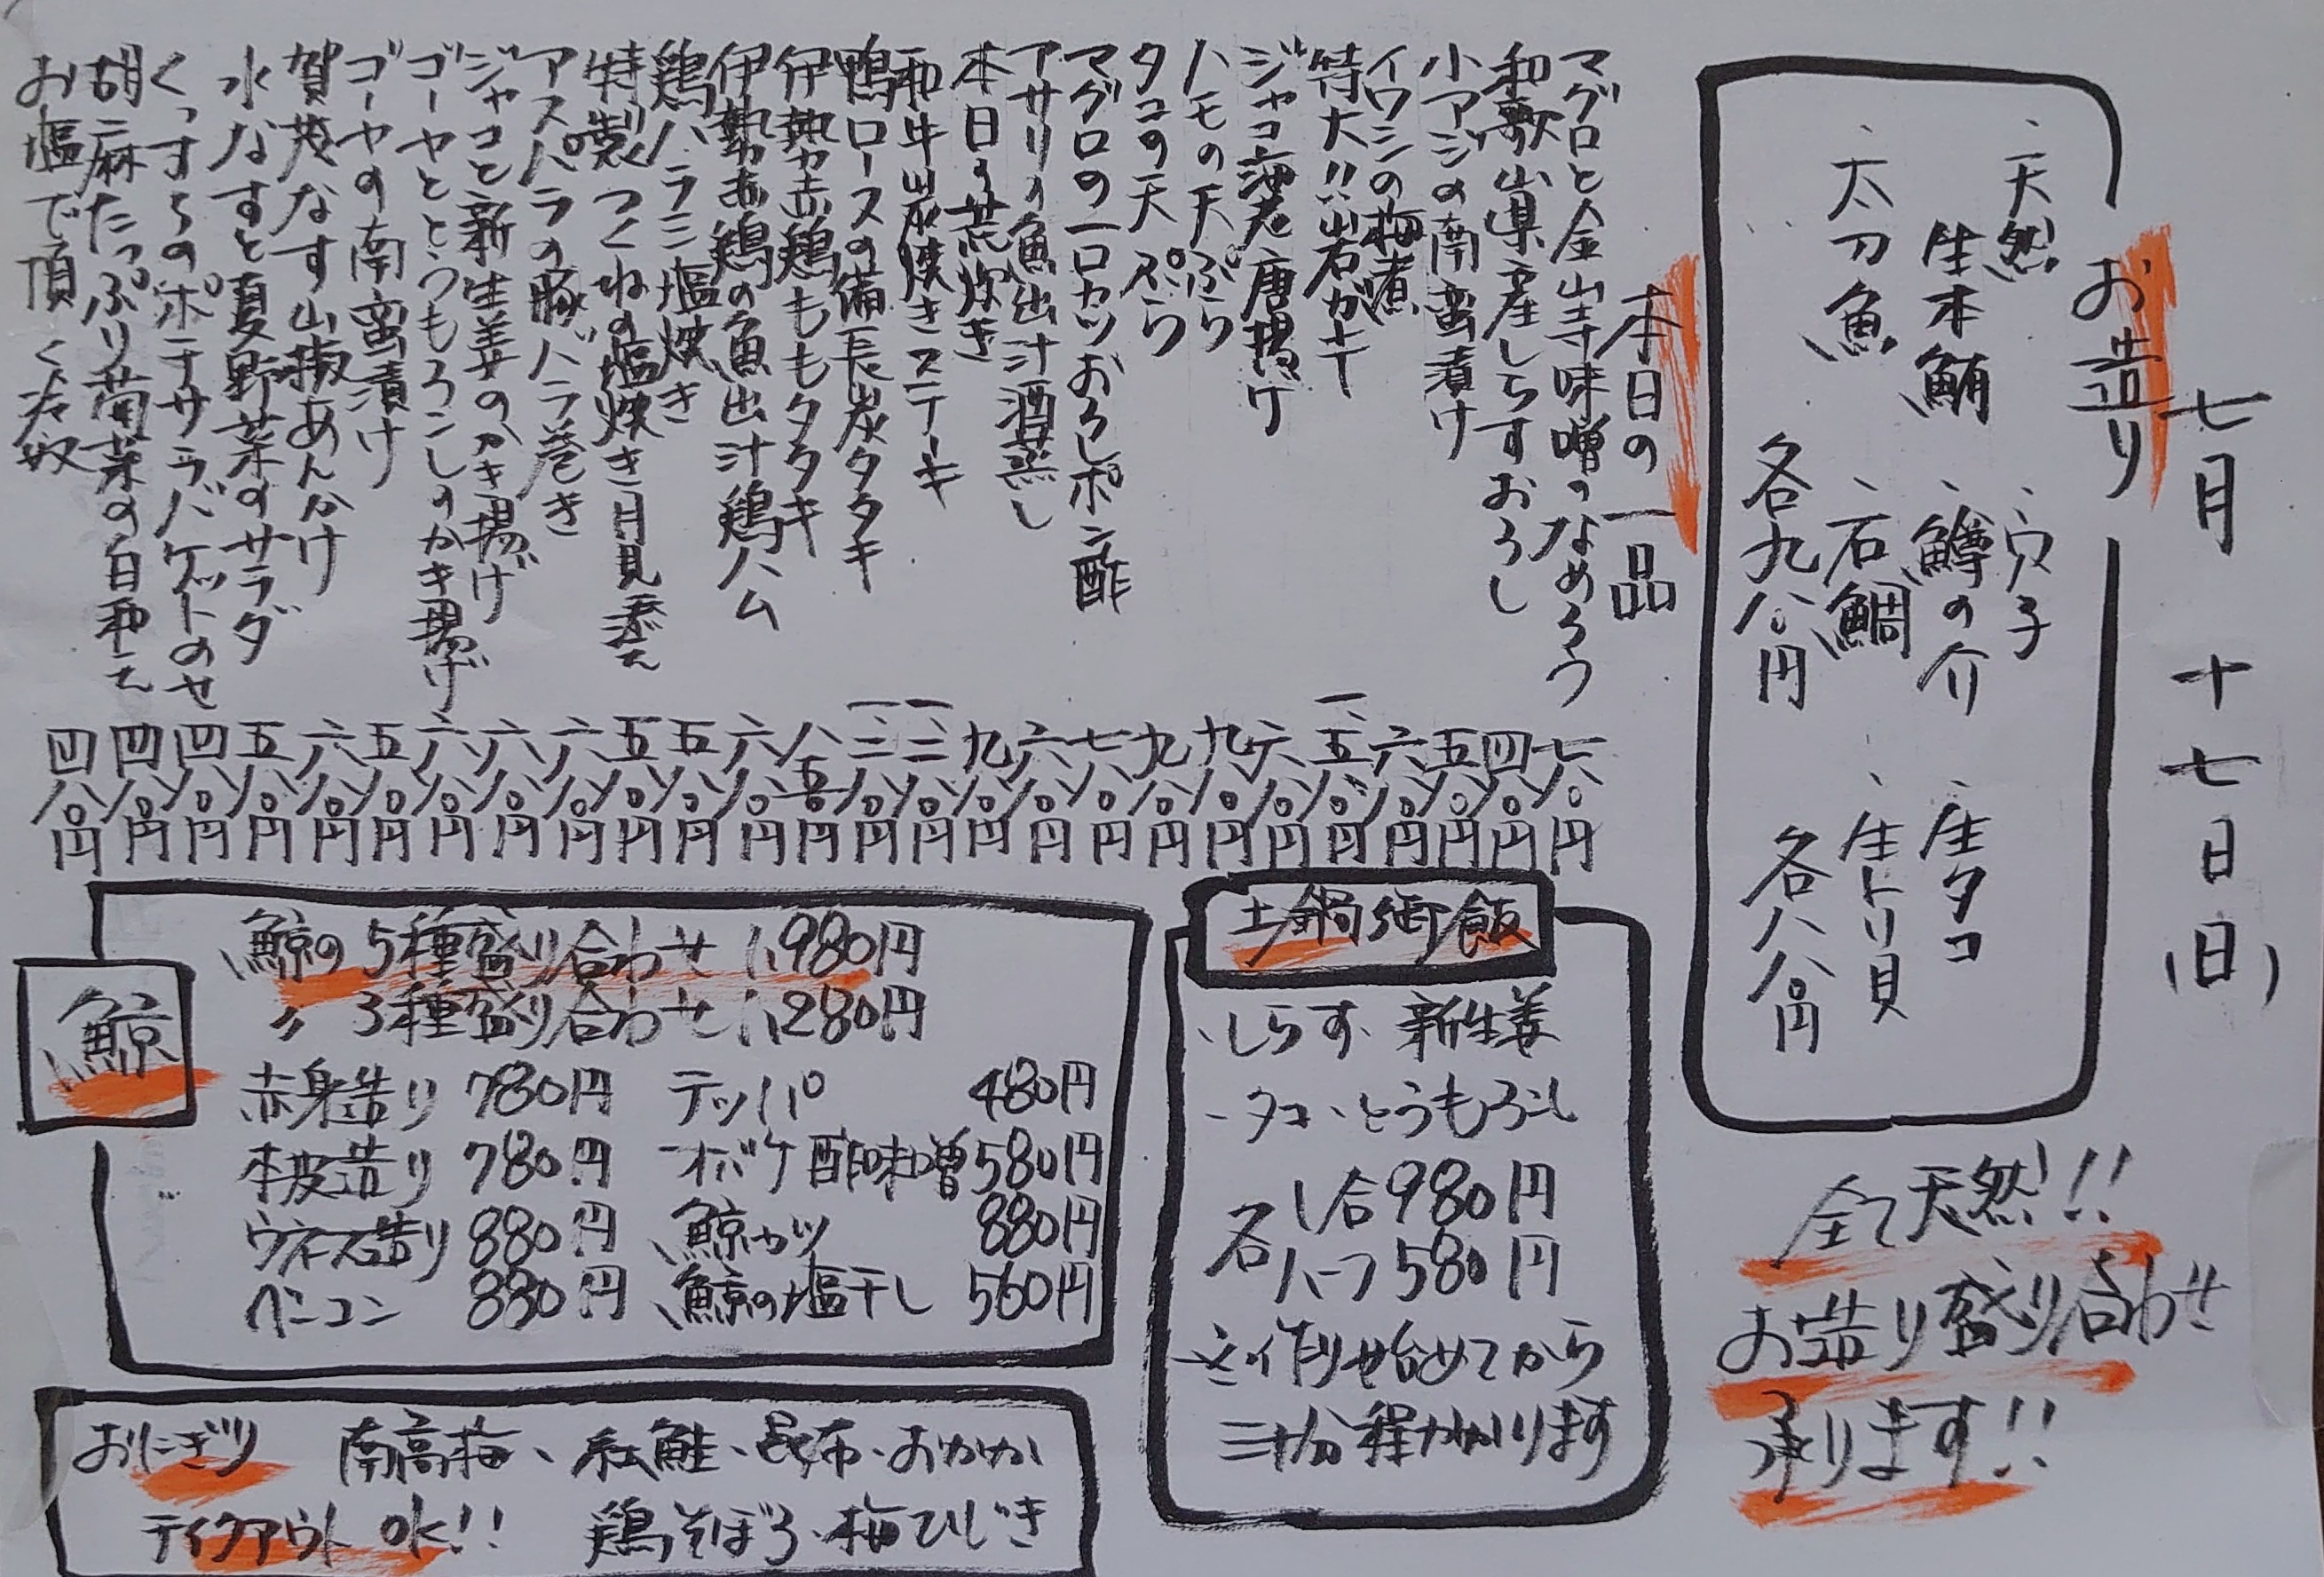 七月 十七日(日)
お造り
・天然 生本鮪
・太刀魚
・穴子
・鱒の介
・石鯛
各九八〇円
・生タコ
・生トリ貝
各八八〇円
全て天然!!
お造り盛り合わせ
承ります!!
本日の一品
マグロと金山寺味噌のなめろう 七八〇円
和歌山県産しらすおろし 四八〇円
小アジの南蛮漬け 五八〇円
イワシの梅煮 六八〇円
特大!!岩ガキ 一、五八〇円
ジャコ海老唐揚げ 六八〇円
ハモの天ぷら 九八〇円
タコの天ぷら 九八〇円
マグロの一口カツおろしポン酢 七八〇円
アサリの魚出汁酒蒸し 六八〇円
本日の荒炊き 九八〇円
和牛炭焼きステーキ 一、二八〇円
鴨ロースの備長炭タタキ 一、二八〇円
伊勢赤鶏ももタタキ 八八〇円
伊勢赤鶏の魚出汁鶏ハム 六八〇円
鶏ハラミ塩焼き 五八〇円
特製つくねの塩焼き月見添え 五八〇円
アスパラの豚バラ巻き 六八〇円
ジャコと新生姜のかき揚げ 六八〇円
ゴーヤととうもろこしのかき揚げ 六八〇円
ゴーヤの南蛮漬け 五八〇円
賀茂なす山椒あんかけ 六八〇円
水なすと夏野菜のサラダ 五八〇円
くっすらのポテサラバケットのせ 四八〇円
胡麻たっぷり菊菜の白和え 四八〇円
お塩で頂く冷奴 四八〇円
土鍋御飯
・しらす・新生姜
・タコ・とうもろこし
各 1合980円
各 ハーフ580円
※作り始めてから
三十分程かかります
鯨
鯨の5種盛り合わせ 1,980円
〃 3種盛り合わせ 1,280円
赤身造り 780円 テッパ 480円
本皮造り 780円 オバケ酢味噌 580円
ウネス造り 880円 鯨カツ 880円
ベーコン 880円 鯨の塩干し 560円
おにぎり 南高梅、紅鮭、昆布、おかか
テイクアウトOK!! 鶏そぼろ・梅ひじき